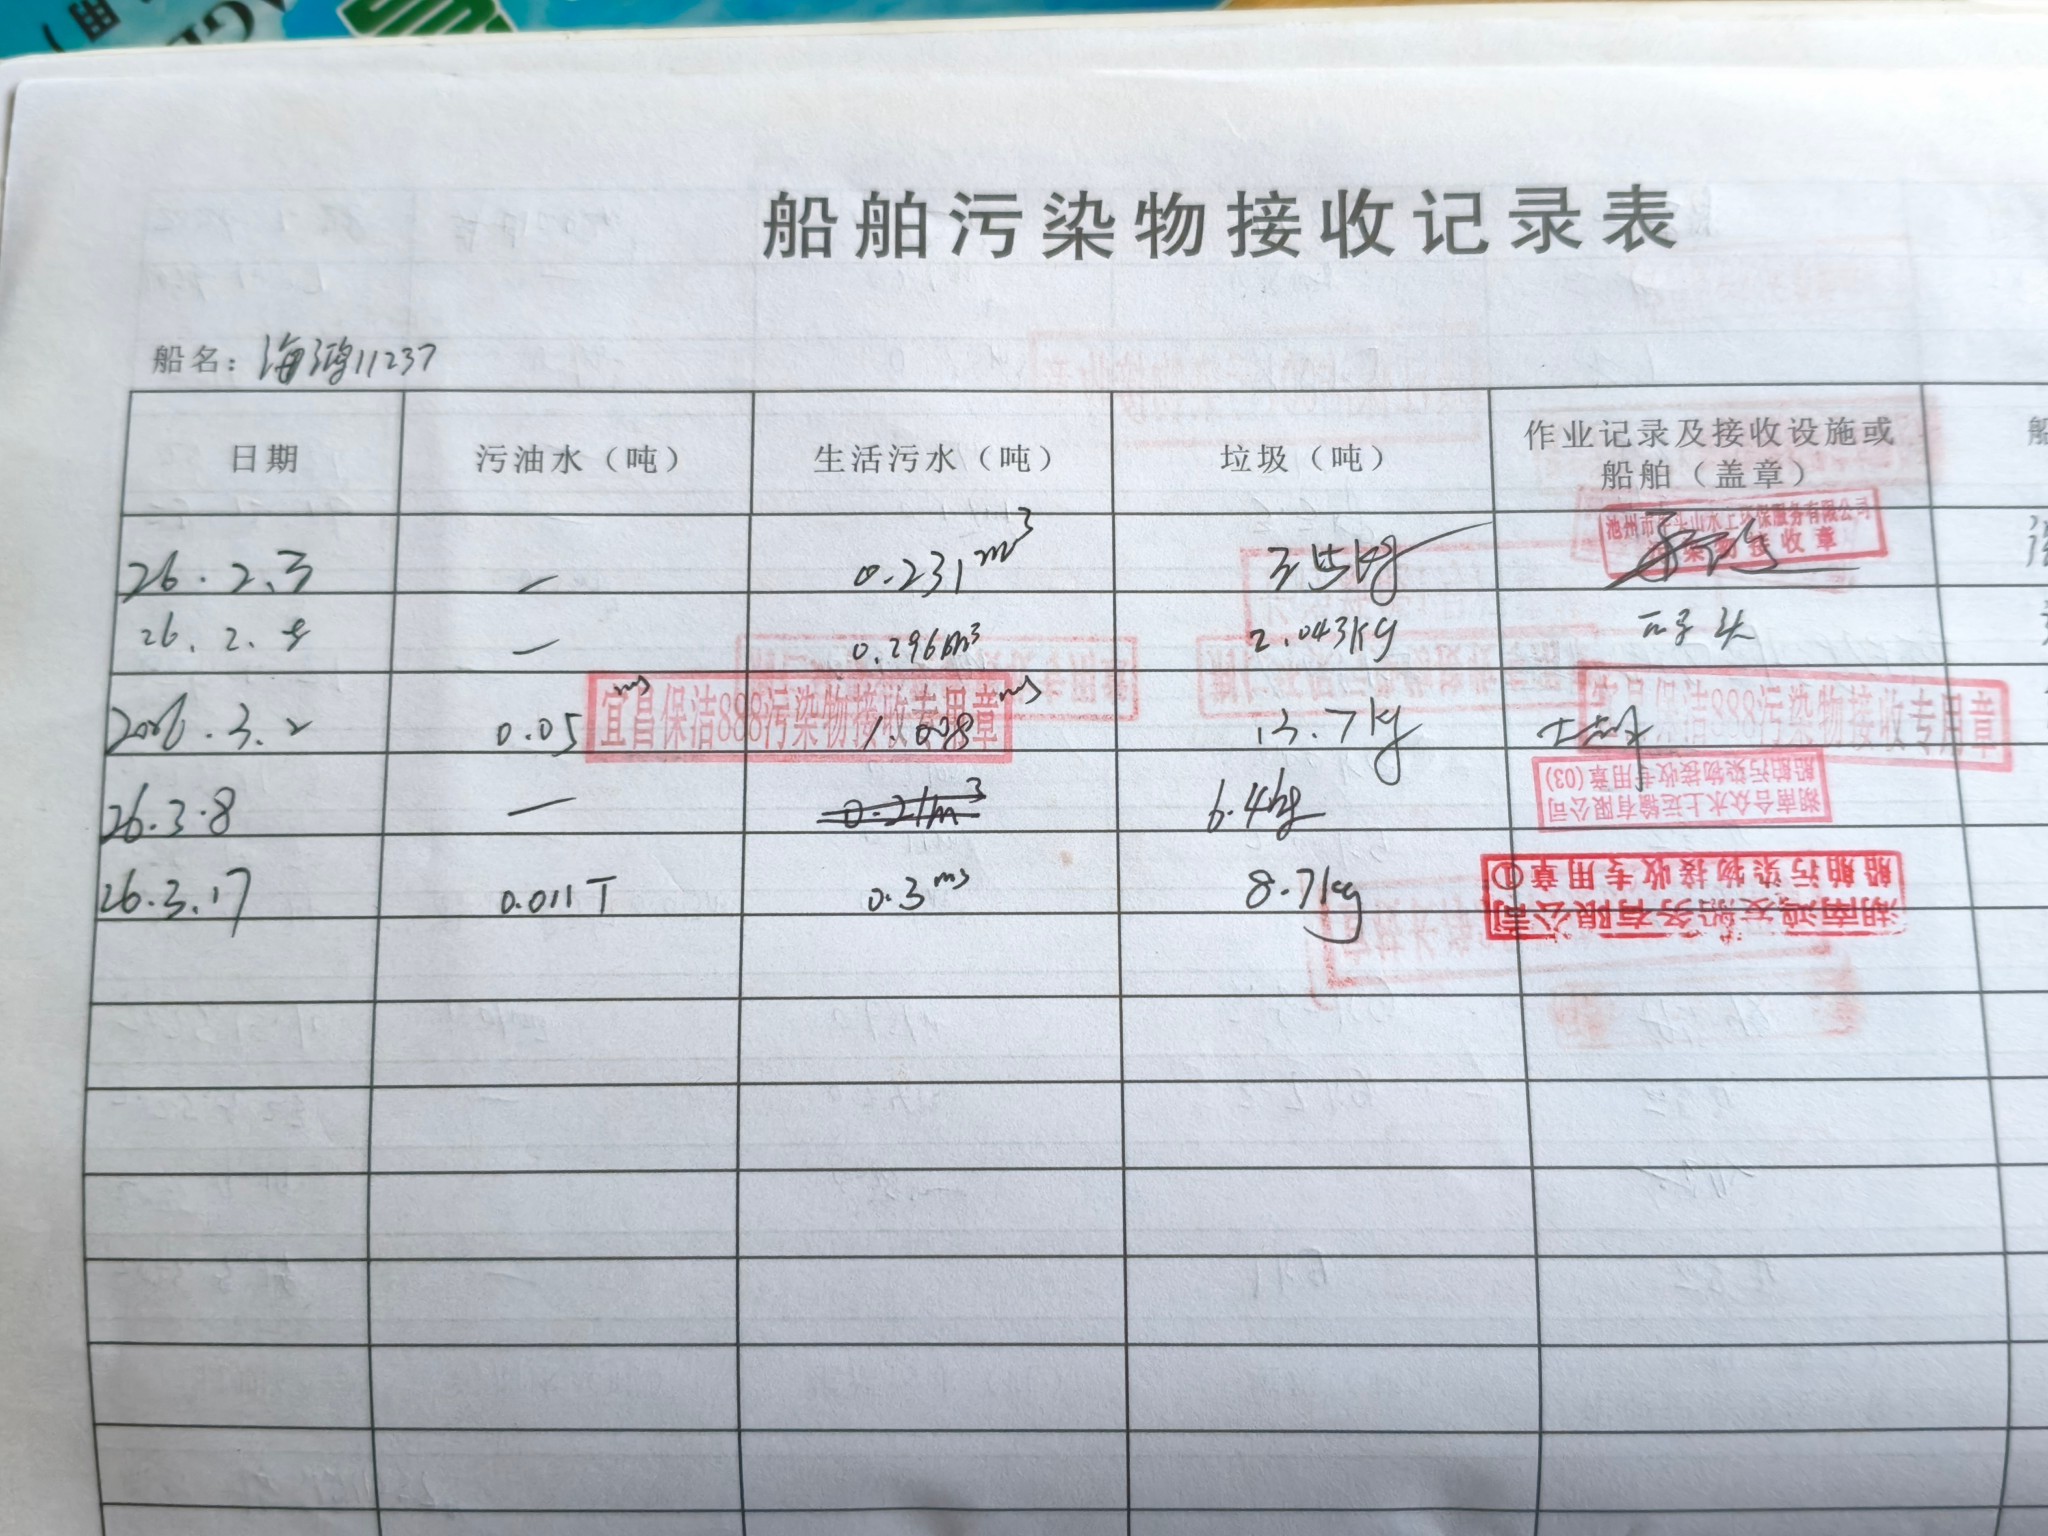 船舶污染物接收记录表
船名：海鸿11237
日期 污油水（吨） 生活污水（吨） 垃圾（吨） 作业记录及接收设施或船舶（盖章）
26.2.3 — 0.231m³
污染物接收章
26.2. — 0.296m³ 2.043KG
2026.3.2 0.05 m³ 1.008 m³ 13.7kg
宜昌保洁888污染物接收专用章
宜昌保洁888污染物接收专用章
26.3.8 — 0.21m³ 6.4kg
湖南合众水上运输有限公司
船舶污染物接收专用章(03)
26.3.17 0.011T 0.3m³ 8.7kg
湖南鸿发船务有限公司
船舶污染物接收专用章①